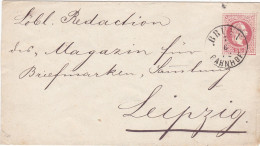 Löbl. Redaction
des Magazin für
Briefmarken, Sammlung
Leipzig.
BAHNHOF